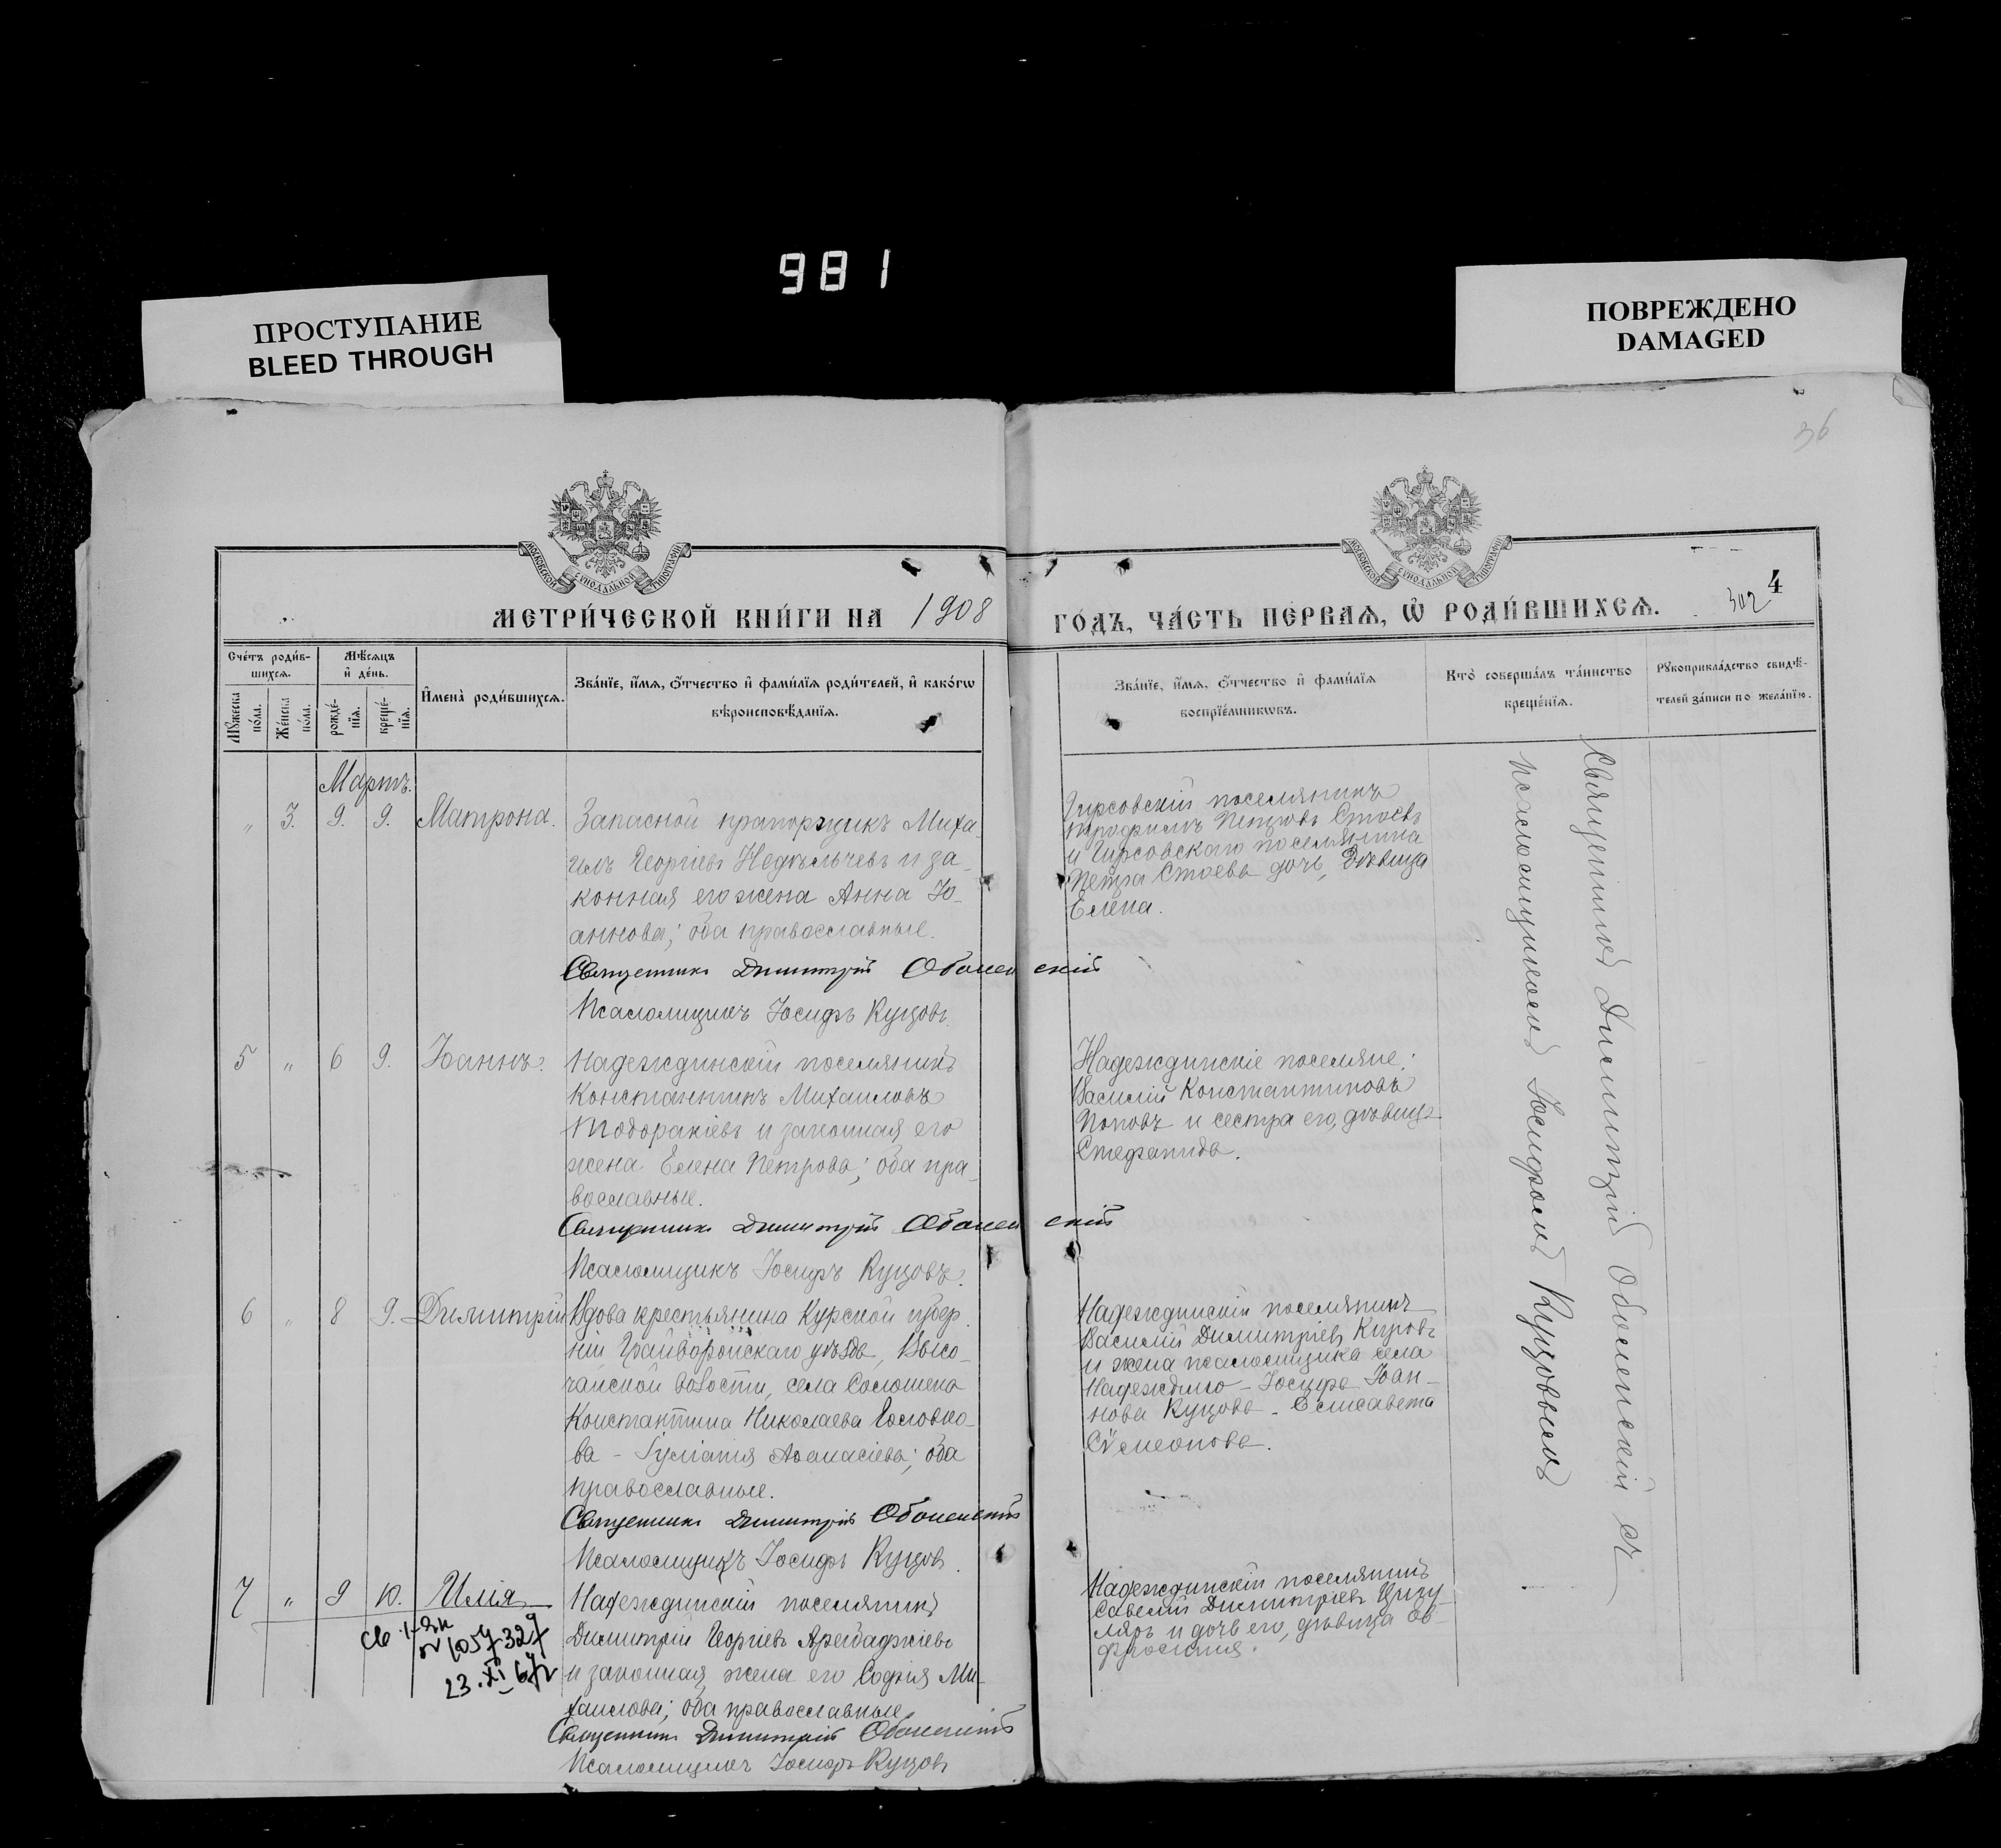 981
ПРОСТУПАНИЕ
BLEED THROUGH
ПОВРЕЖДЕНО
DAMAGED
36
МОСКОВСКОЙ СѴНОДАЛЬНОЙ ТИПОГРАФІИ
МОСКОВСКОЙ СѴНОДАЛЬНОЙ ТИПОГРАФІИ
МЕТРИ́ЧЕСКОЙ КНИ́ГИ НА 1908
ГО́ДЪ, ЧА́СТЬ ПЕ́РВАѦ, Ѡ҆ РОДИ́ВШИХСѦ.
302
4
Сче́тъ роди́в-
шихсѧ.
Мѣ́сѧцъ
и҆ де́нь.
Мꙋ́жеска
по́ла.
Же́нска
по́ла.
рожде́-
нїѧ.
креще́-
нїѧ.
И҆мена̀ роди́вшихсѧ.
Зва́нїе, и҆́мѧ, ѻ҆́тчество и҆ фами́лїѧ роди́телей, и҆ како́гѡ
вѣроисповѣ́данїѧ.
Зва́нїе, и҆́мѧ, ѻ҆́тчество и҆ фами́лїѧ
воспрїе́мникѡвъ.
Кто̀ соверша́лъ та́инство
креще́нїѧ.
Рꙋкоприкла́дство свидѣ́-
телей за́писи по жела́нїю.
Мартъ.
„ 3. 9. 9. Матрона.
Запасной прапорщикъ Миха-
илъ Георгіевъ Недѣльчевъ и за-
конная его жена Анна Іо-
аннова; оба православные.
Священникъ Димитрій Оболенскій
Псаломщикъ Іосифъ Куцовъ.
Гирсовскій поселянинъ
Трофимъ Петровъ Стоевъ
и Гирсовскаго поселянина
Петра Стоева дочь, дѣвица
Елена.
5 „ 6 9. Іоаннъ.
Надеждинскій поселянинъ
Константинъ Михаиловъ
Тодоракіевъ и законная его
жена Елена Петрова; оба пра-
вославные.
Священникъ Димитрій Оболенскій
Псаломщикъ Іосифъ Куцовъ.
Надеждинскіе поселяне:
Василій Константиновъ
Поповъ и сестра его, дѣвица
Стефанида.
6 „ 8 9. Димитрій
Вдова крестьянина Курской губер-
ніи Грайворонскаго уѣзда, Высо-
чанской волости, села Солошена
Константина Николаева
ва - Іуліанія Аѳанасіева; оба
православные.
Священникъ Димитрій Оболенскій
Псаломщикъ Іосифъ Куцовъ.
Надеждинскій поселянинъ
Василій Димитріевъ Кировъ
и жена псаломщика села
Надеждино - Іосифа Іоан-
нова Куцова - Елисавета
Сѵмеонова.
7 „ 9 10. Илія
Надеждинскій поселянинъ
Димитрій Георгіевъ Арабаджіевъ
и законная жена его Софія Ми-
хаилова; оба православные.
Священникъ Димитрій Оболенскій
Псаломщикъ Іосифъ Куцовъ
23.XI 67г
Надеждинскій поселянинъ
Савелій Димитріевъ
и дочь его, дѣвица Ев-
фросинія.
Священникъ Димитрій Оболенскій съ
псаломщикомъ Іосифомъ Куцовымъ